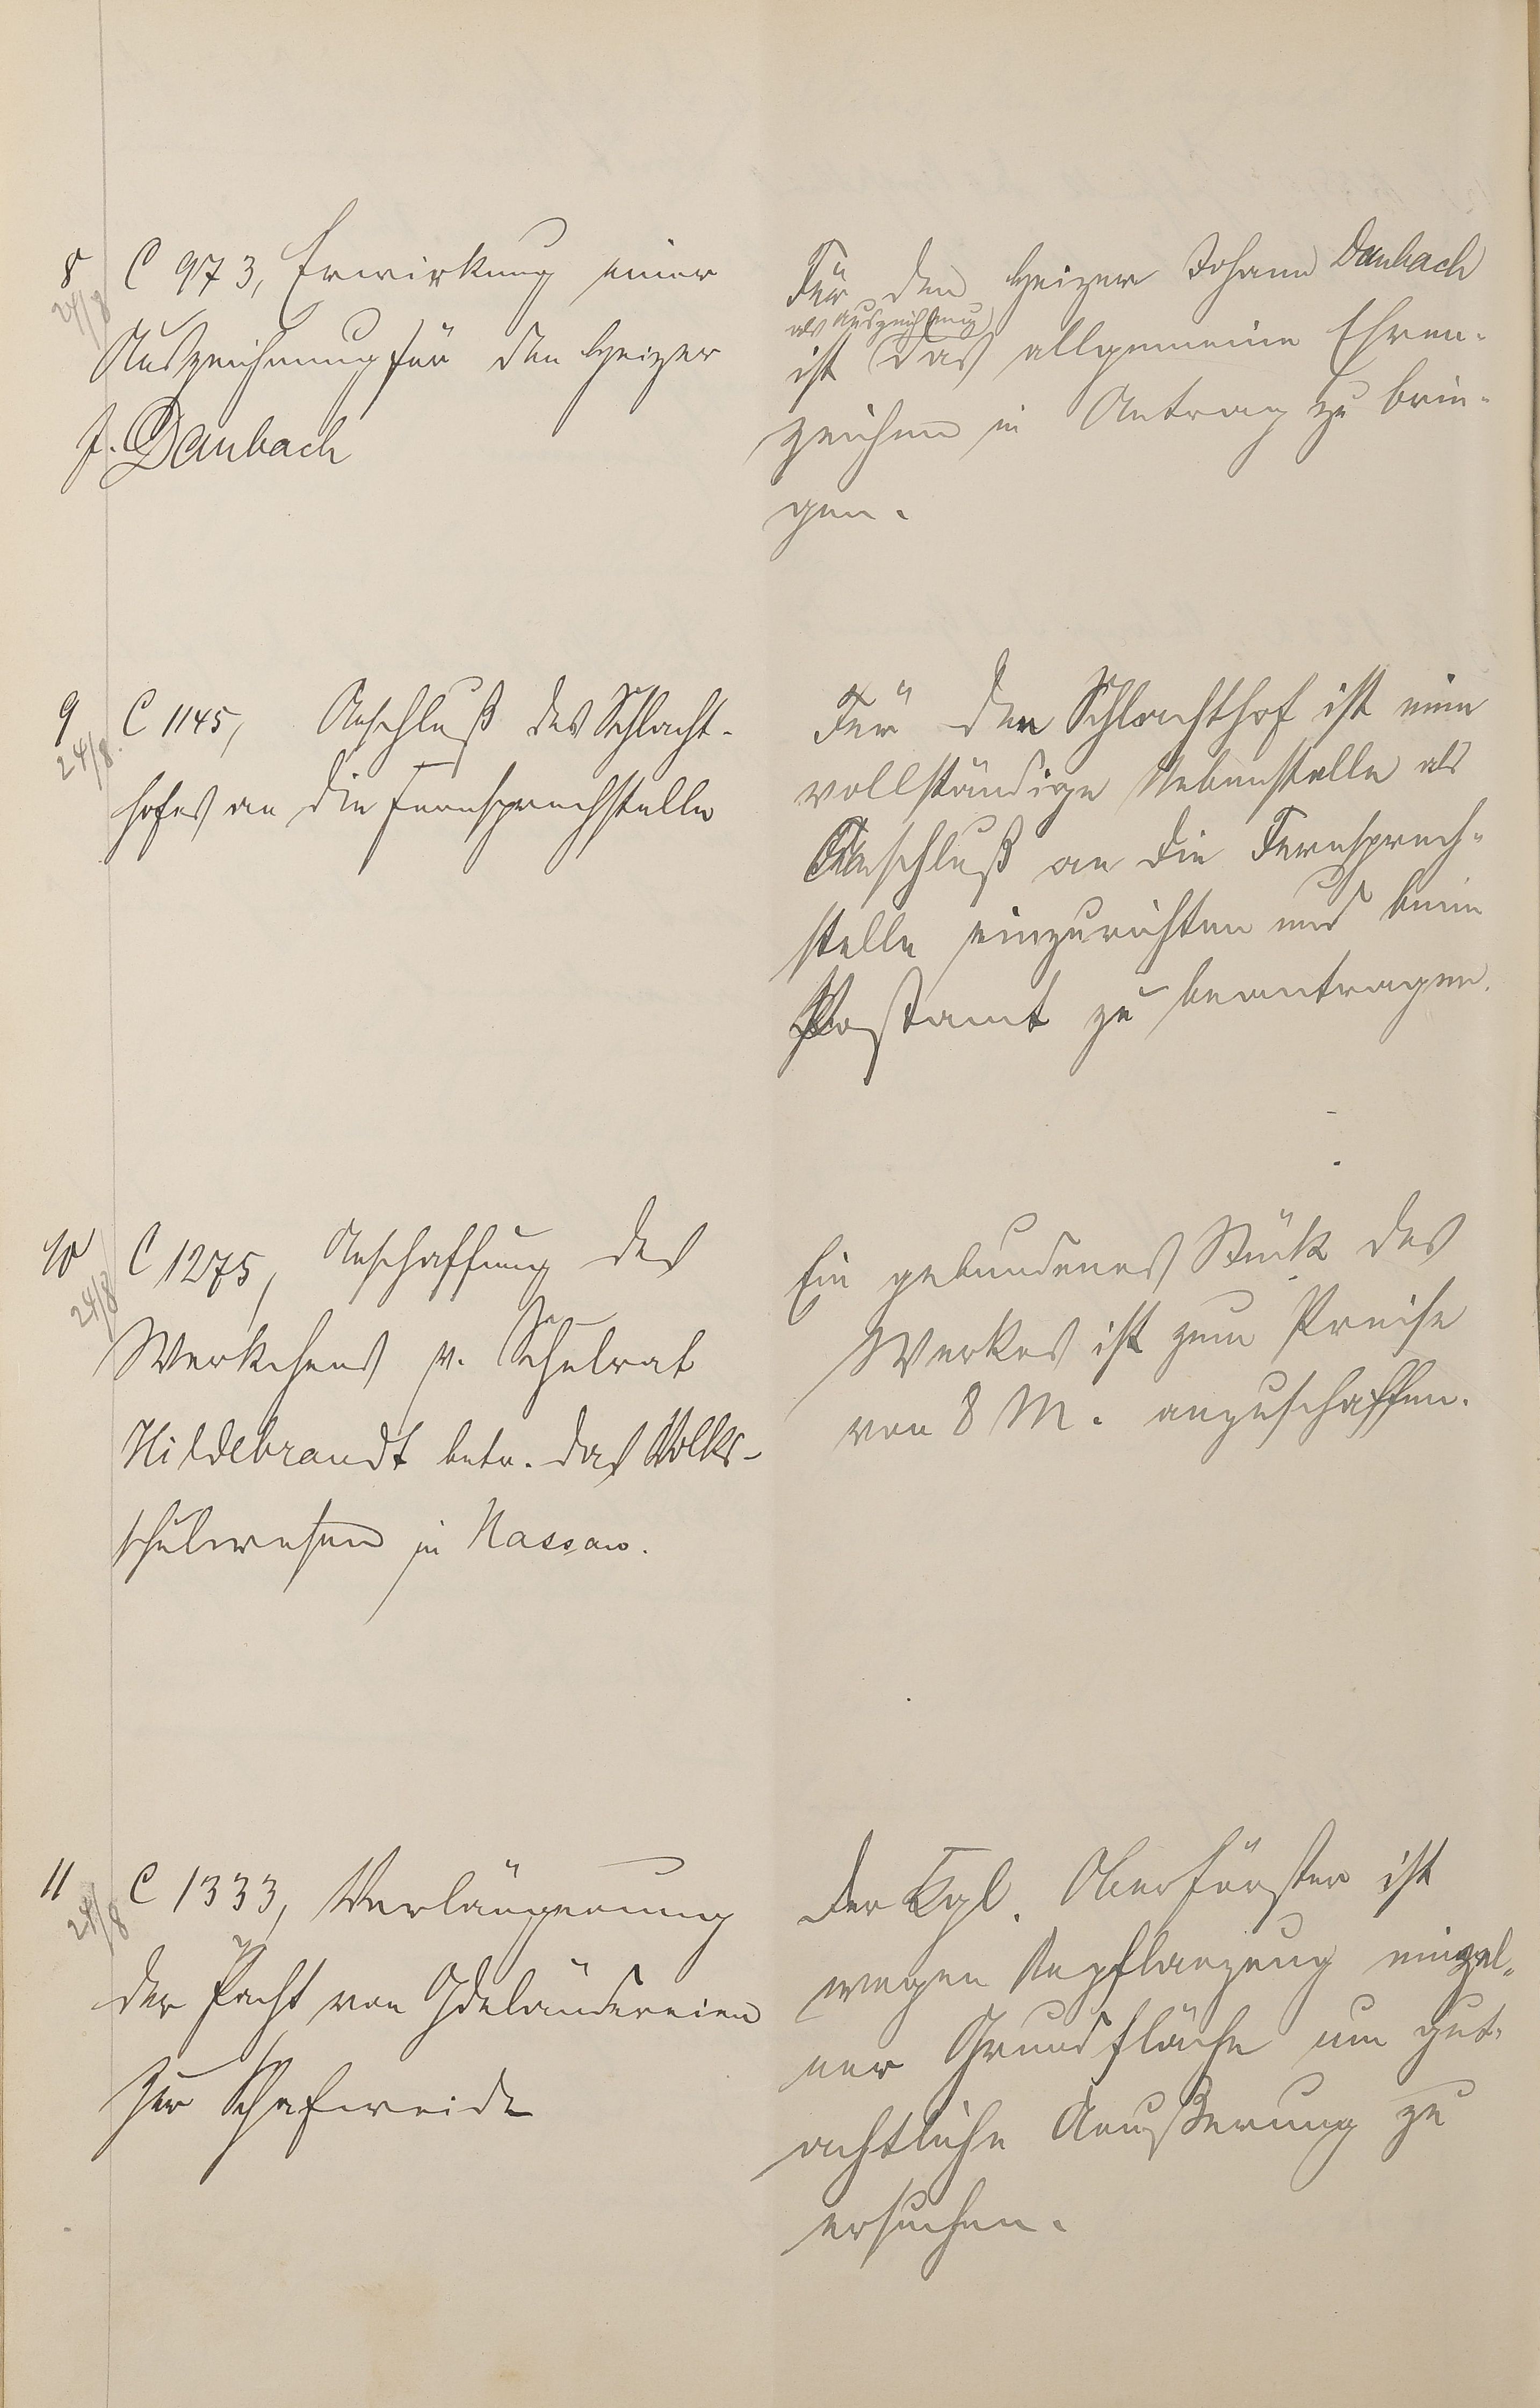 8 C 973, Erwirkung einer
24/8
Auszeichnung für den Heizer
J. Daubach
Für den Heizer Johann Daubach
als Auszeichnung
ist das allgemeine Ehren-
zeichen in Antrag zu brin-
gen.
9 C 1145, Anschluß des Schlacht-
24/8.
hofes an die Fernsprechstelle
Für den Schlachthof ist eine
vollständige Nebenstelle als
Anschluß an die Fernsprech-
stelle einzurichten und beim
Postamt zu beantragen.
10 C 1275, Anschaffung des
24/8
Werkchens v. Schulrat
Hildebrandt betr. das Volks-
schulwesen in Nassau.
Ein gebundenes Stück des
Werkes ist zum Preise
von 8 M. anzuschaffen.
11 C 1333, Verlängerung
24/8
der Pacht von Ödeländereien
zur Schafweide
Der Kgl. Oberförster ist
wegen Bepflanzung einzel-
ner Grundfläche um gut-
achtliche Aeußerung zu
ersuchen.